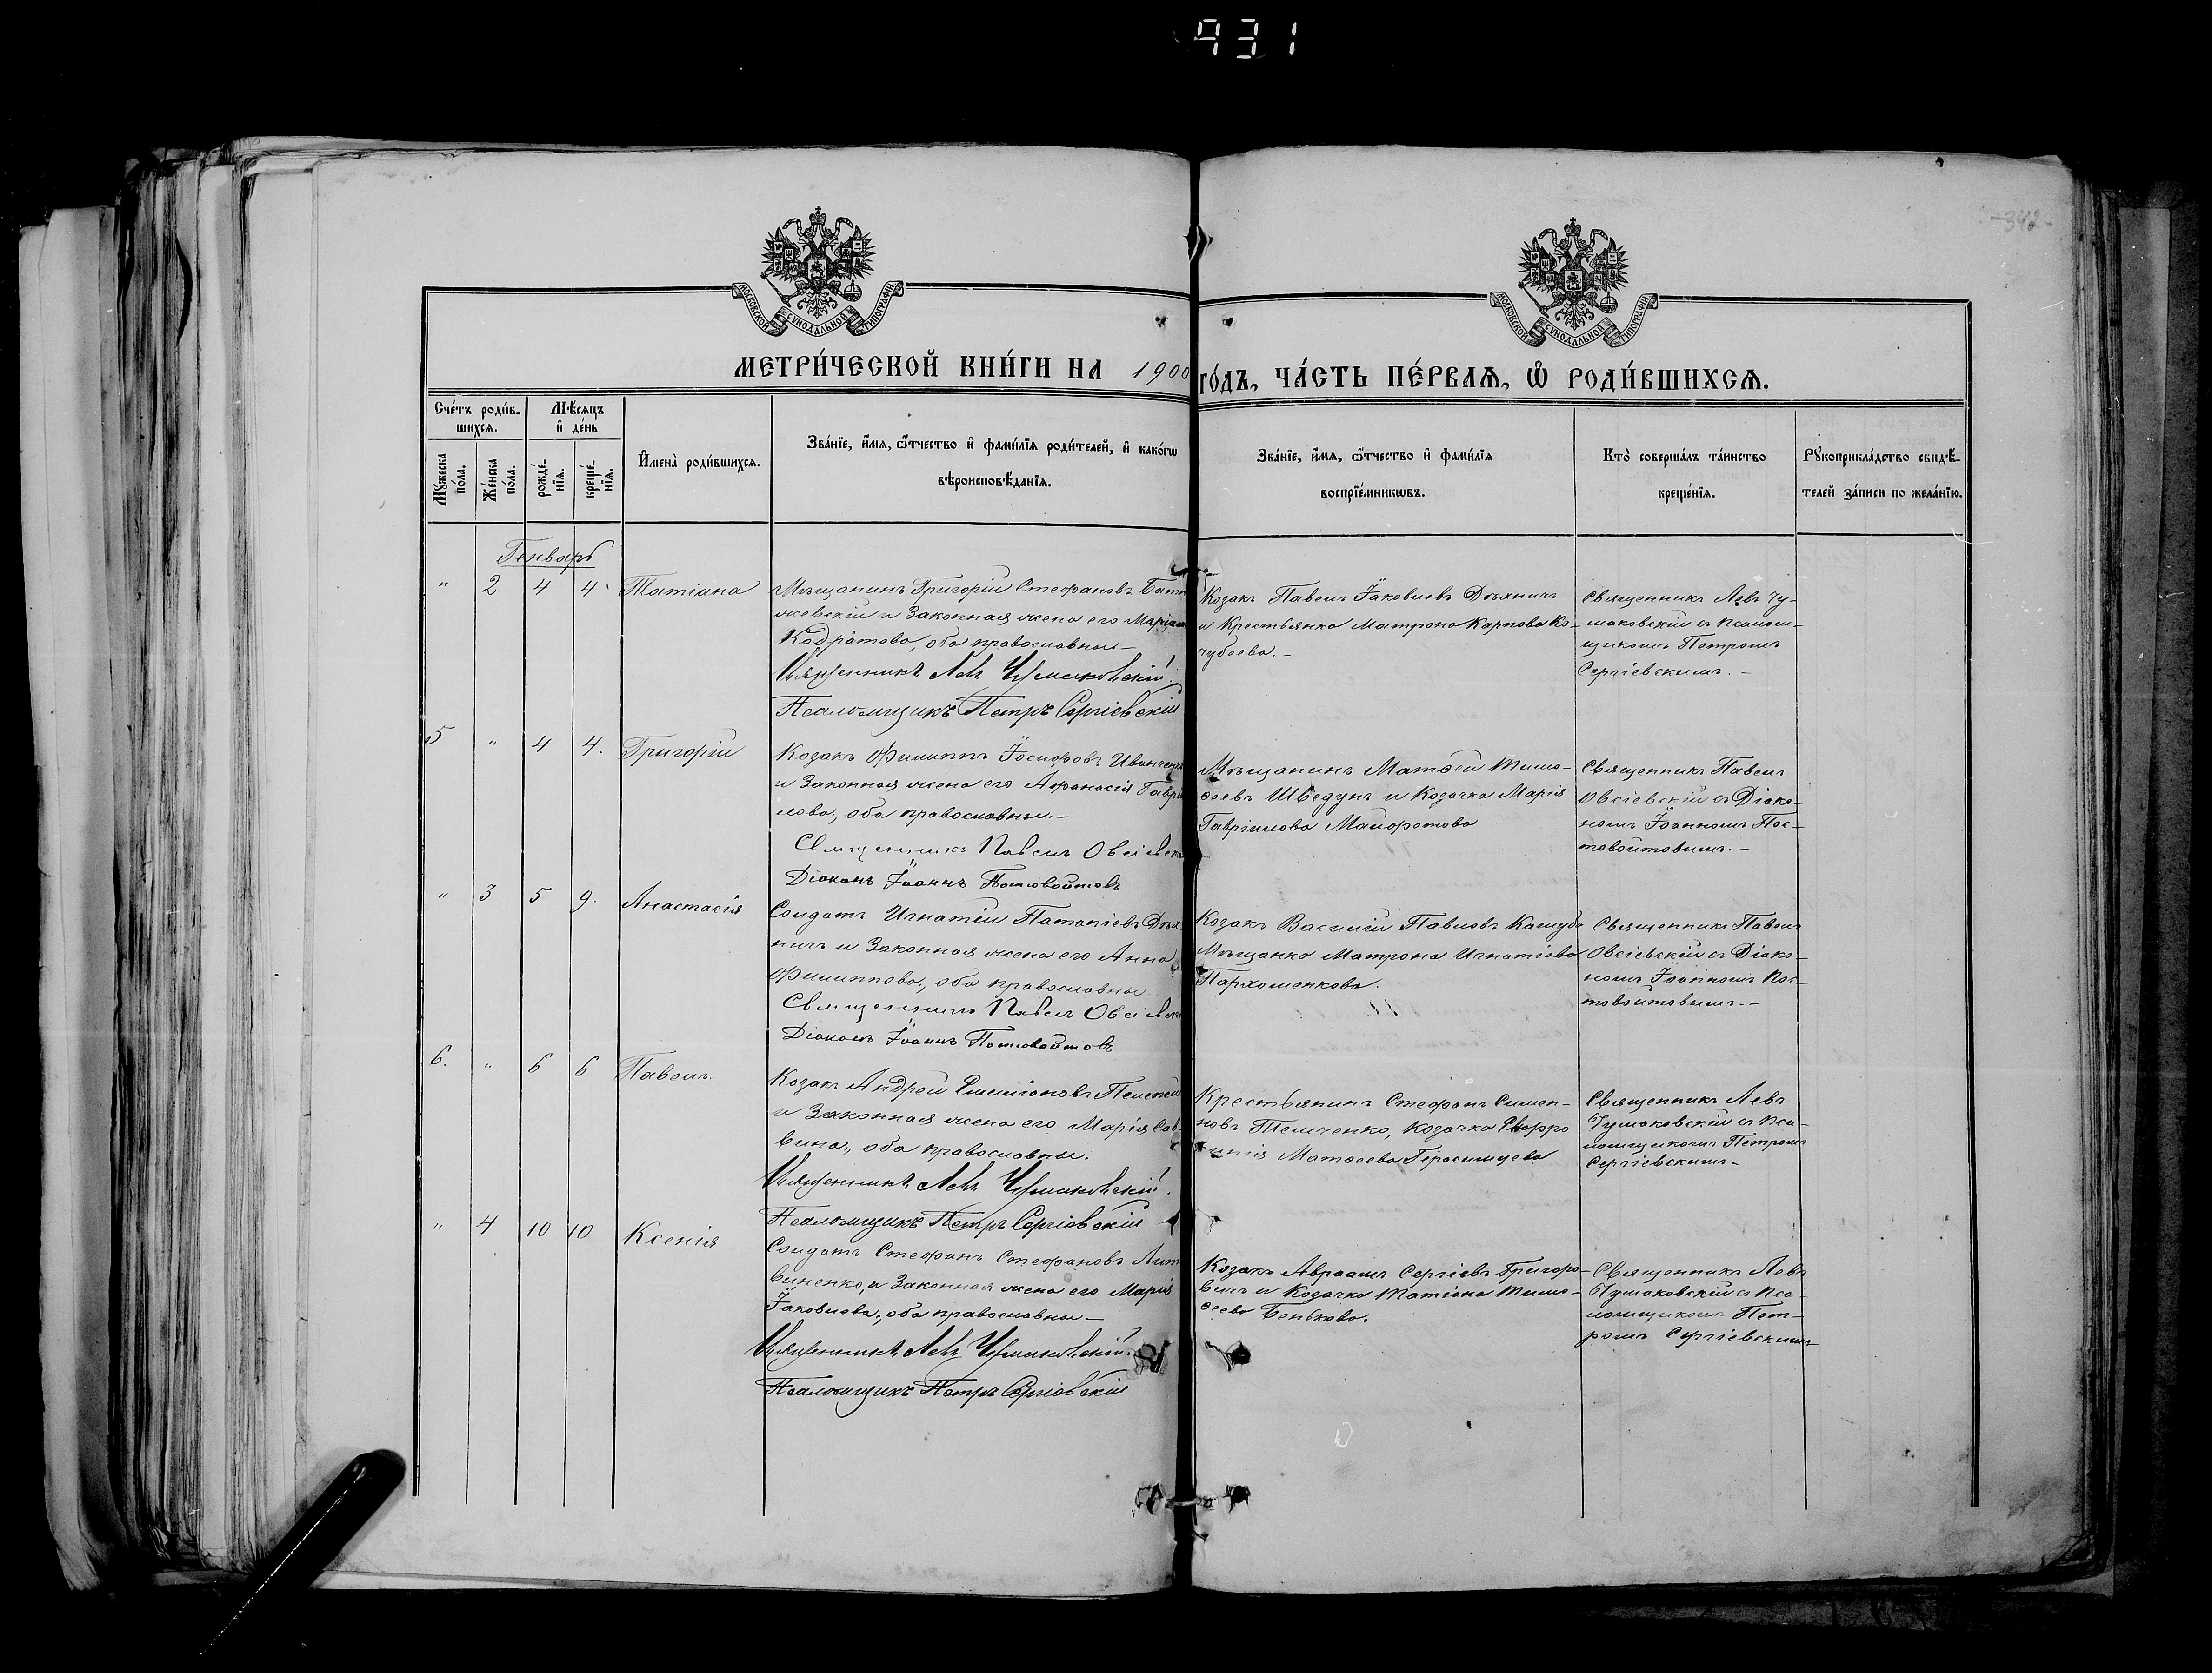 931
-342-
МОСКОВСКОЙ СѴНОДАЛЬНОЙ ТИПОГРАФІИ
МОСКОВСКОЙ СѴНОДАЛЬНОЙ ТИПОГРАФІИ
МЕТРИ́ЧЕСКОЙ КНИ́ГИ НА 1900 ГО́ДЪ, ЧА́СТЬ ПЕ́РВАѦ, Ѽ РОДИ́ВШИХСѦ.
Сче́тъ роди́в-
шихсѧ.
Мѣ́сѧцъ
и҆ де́нь
Мꙋ́жеска
по́ла.
Же́нска
по́ла.
рожде́-
нїѧ.
креще́-
нїѧ.
И҆мена̀ роди́вшихсѧ.
Зва́нїе, и҆́мѧ, ѻ҆́тчество и҆ фами́лїѧ роди́телей, и҆ како́гѡ
вѣроисповѣ́данїѧ.
Зва́нїе, и҆́мѧ, ѻ҆́тчество и҆ фами́лїѧ
воспрїе́мникѡвъ.
Кто̀ соверша́лъ та́инство
креще́нїѧ.
Рꙋкоприкла́дство свидѣ́-
телей за́писи по жела́нїю.
Генварь
" 2 4 4 Татіана
Мѣщанинъ Григорій Стефановъ
и Законная жена его
Кодратова, оба православные —
Священникъ Левъ Чумаковскій.
Псаломщикъ Петръ Сергіевскій
Козакъ Павелъ Іаковлевъ Дѣяничъ
и Крестьянка Матрона Карпова Ко-
чубеева. —
Священникъ Левъ Чу-
маковскій съ псалом-
щикомъ Петромъ
Сергіевскимъ. —
5 " 4 4. Григорій
Козакъ Филиппъ Іосифовъ
и Законная жена его Афанасія Гаврі
лова, оба православные. —
Священникъ Павелъ Овсіевск
Діаконъ Іоаннъ Постовойтовъ
Мѣщанинъ Матѳей Тимо-
ѳеевъ Шведунъ и Козачка Марія
Гавріилова
Священникъ Павелъ
Овсіевскій съ Діако-
номъ Іоанномъ Пос-
товойтовымъ. —
" 3 5 9. Анастасія
Солдатъ Игнатій Патапіевъ Дѣя-
ничъ и Законная жена его Анна
Филиппова, оба православные
Священникъ Павелъ Овсіевск
Діаконъ Іоаннъ Постовойтовъ
Козакъ Василій Павловъ Кашуба
Мѣщанка Матрона Игнатіева
Пархоменкова.
Священникъ Павелъ
Овсіевскій съ Діако-
номъ Іоанномъ Пос-
товойтовымъ. —
6. " 6 6 Павелъ.
Козакъ Андрей Емиліановъ
и Законная жена его Марія Сав-
вина, оба православные.
Священникъ Левъ Чумаковскій.
Псаломщикъ Петръ Сергіевскій
Крестьянинъ Стефанъ
новъ Темченко, Козачка Евфро
Матѳеева
Священникъ Левъ
Чумаковскій съ пса-
ломщикомъ Петромъ
Сергіевскимъ —
" 4 10 10 Ксенія
Солдатъ Стефанъ Стефановъ Лит
виненко, и Законная жена его Марія
Іаковлева, оба православные —
Священникъ Левъ Чумаковскій.
Псаломщикъ Петръ Сергіевскій
Козакъ Авраамъ Сергіевъ Григоро-
вичъ и Козачка Татіана Тимо-
ѳеева Бенькова.
Священникъ Левъ
Чумаковскій съ пса-
ломщикомъ Пет-
ромъ Сергіевскимъ